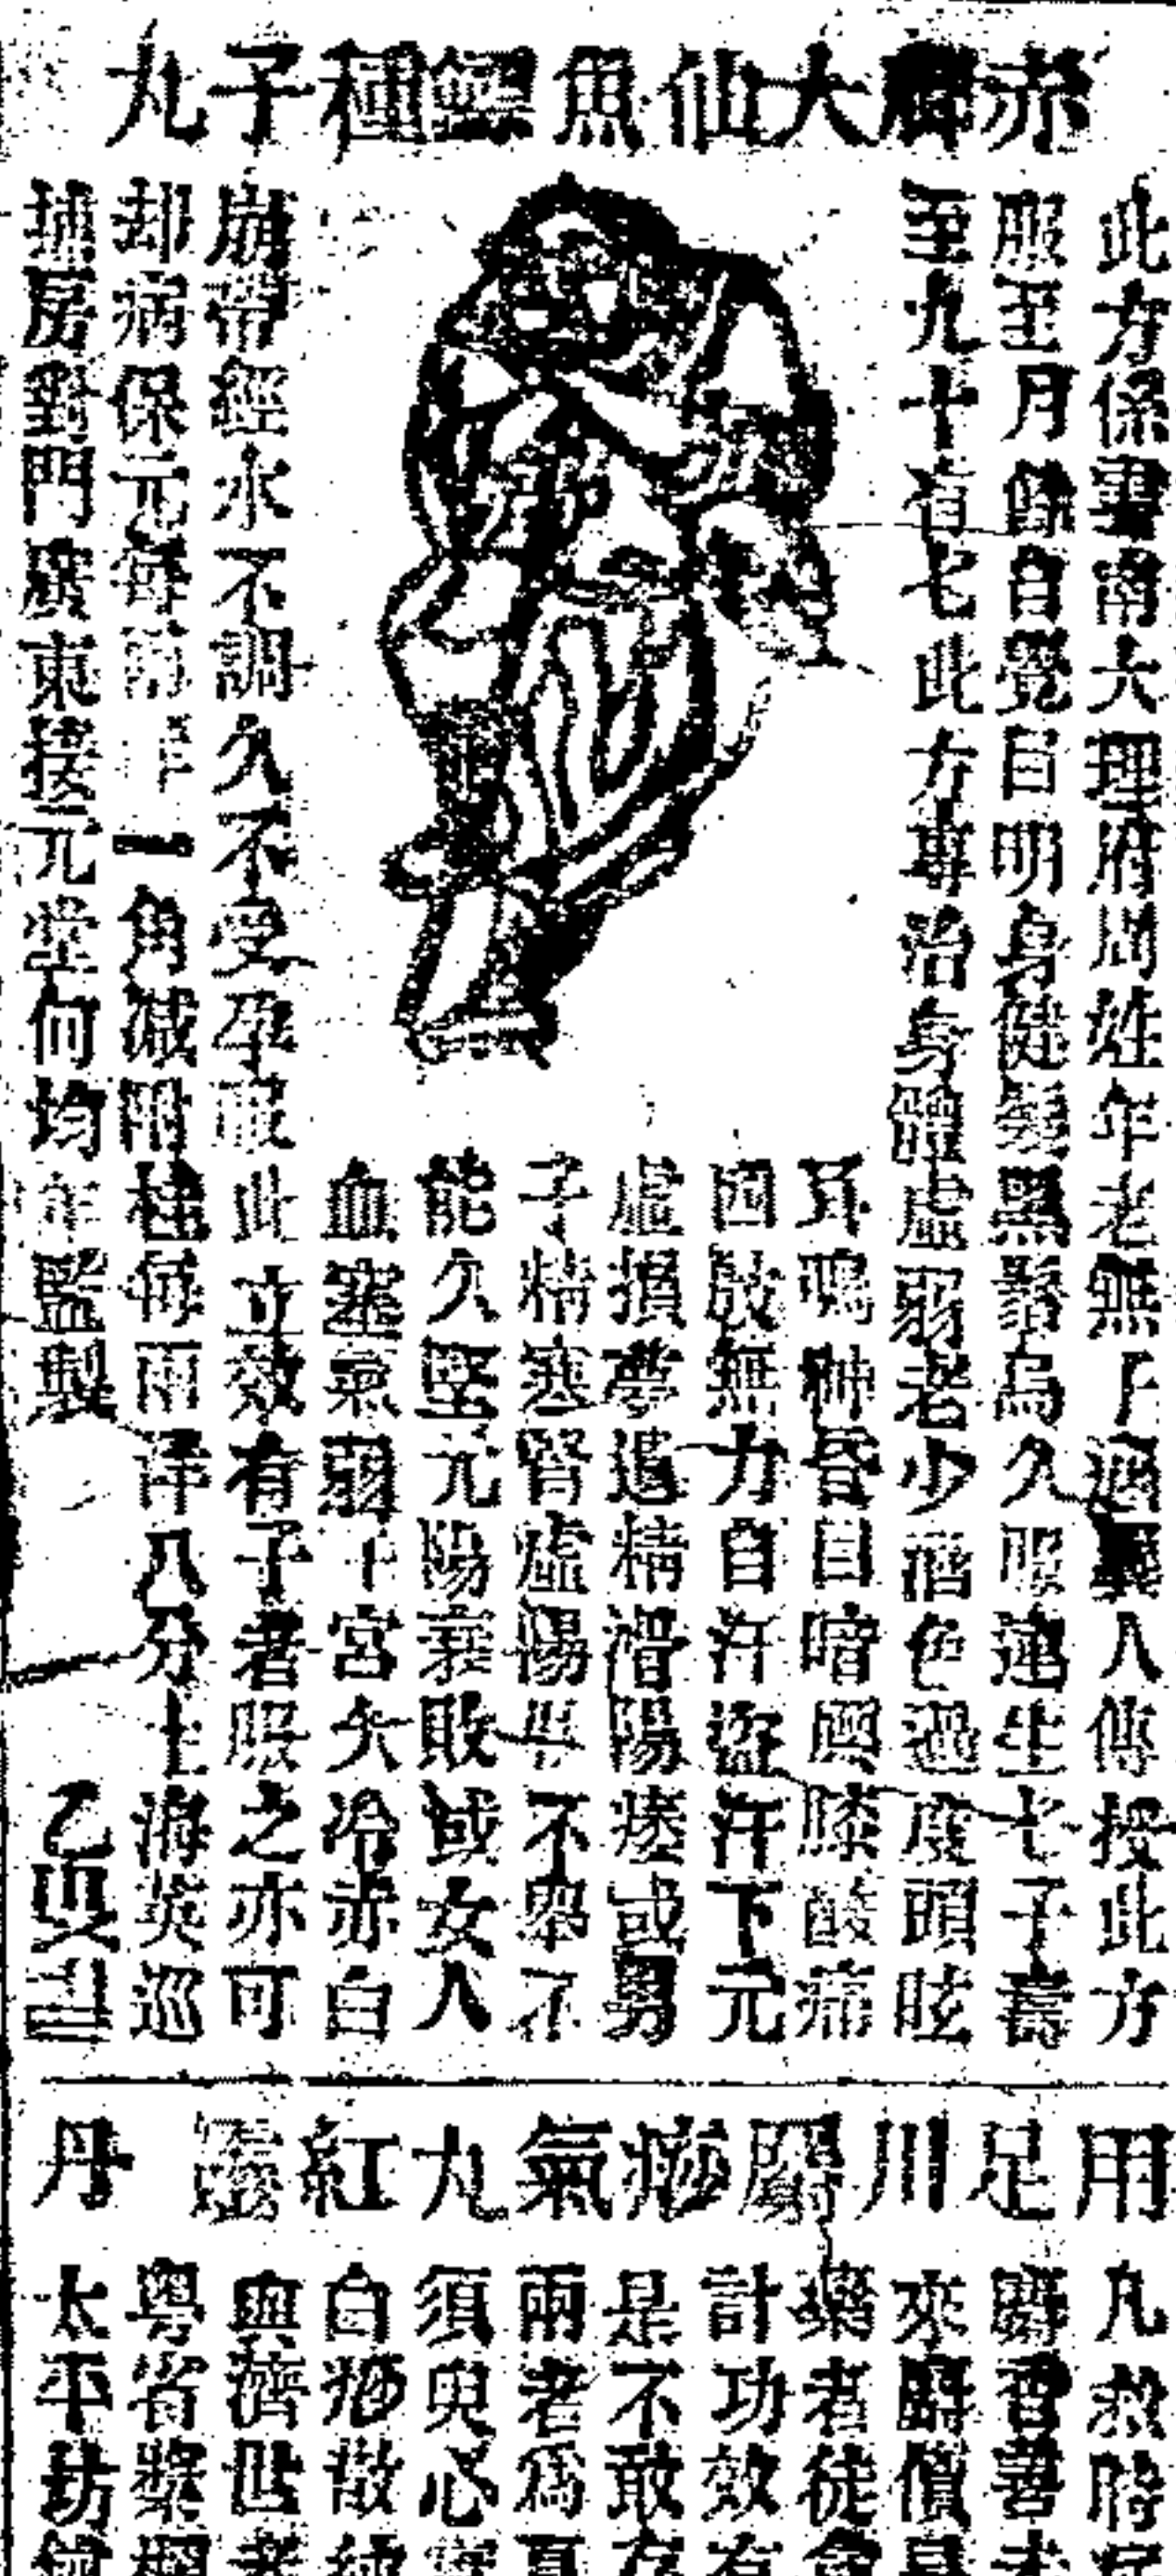 赤脚大仙魚鰾種子丸
此方係雲南大理府周姓年老無子遇異人傳授此方
服至月餘自覺目明身健髮黑鬚烏久服連生七子壽
至九十有七此方專治身體虛弱老少酒色過度頭眩
耳鳴神昏目暗腰膝酸痛
四肢無力自汗盜汗下元
虛損夢遺精滑陽痿或男
子精寒腎虛陽事不舉不
能久堅元陽衰敗或女人
血塞氣弱子宮欠冷赤白
崩帶經水不調久不受孕服此立效有子者服之亦可
却病保元每兩洋一角減附桂每兩洋八分上海英巡
捕房對門廣東接元堂何均年監製
用足川麝痧氣丸紅靈丹
凡救時
麝香善
來麝價
藥者徒
計功效有
是不敢存
兩者爲夏
須與心
白痧散
血濟世者
粵省漿欄
太平坊